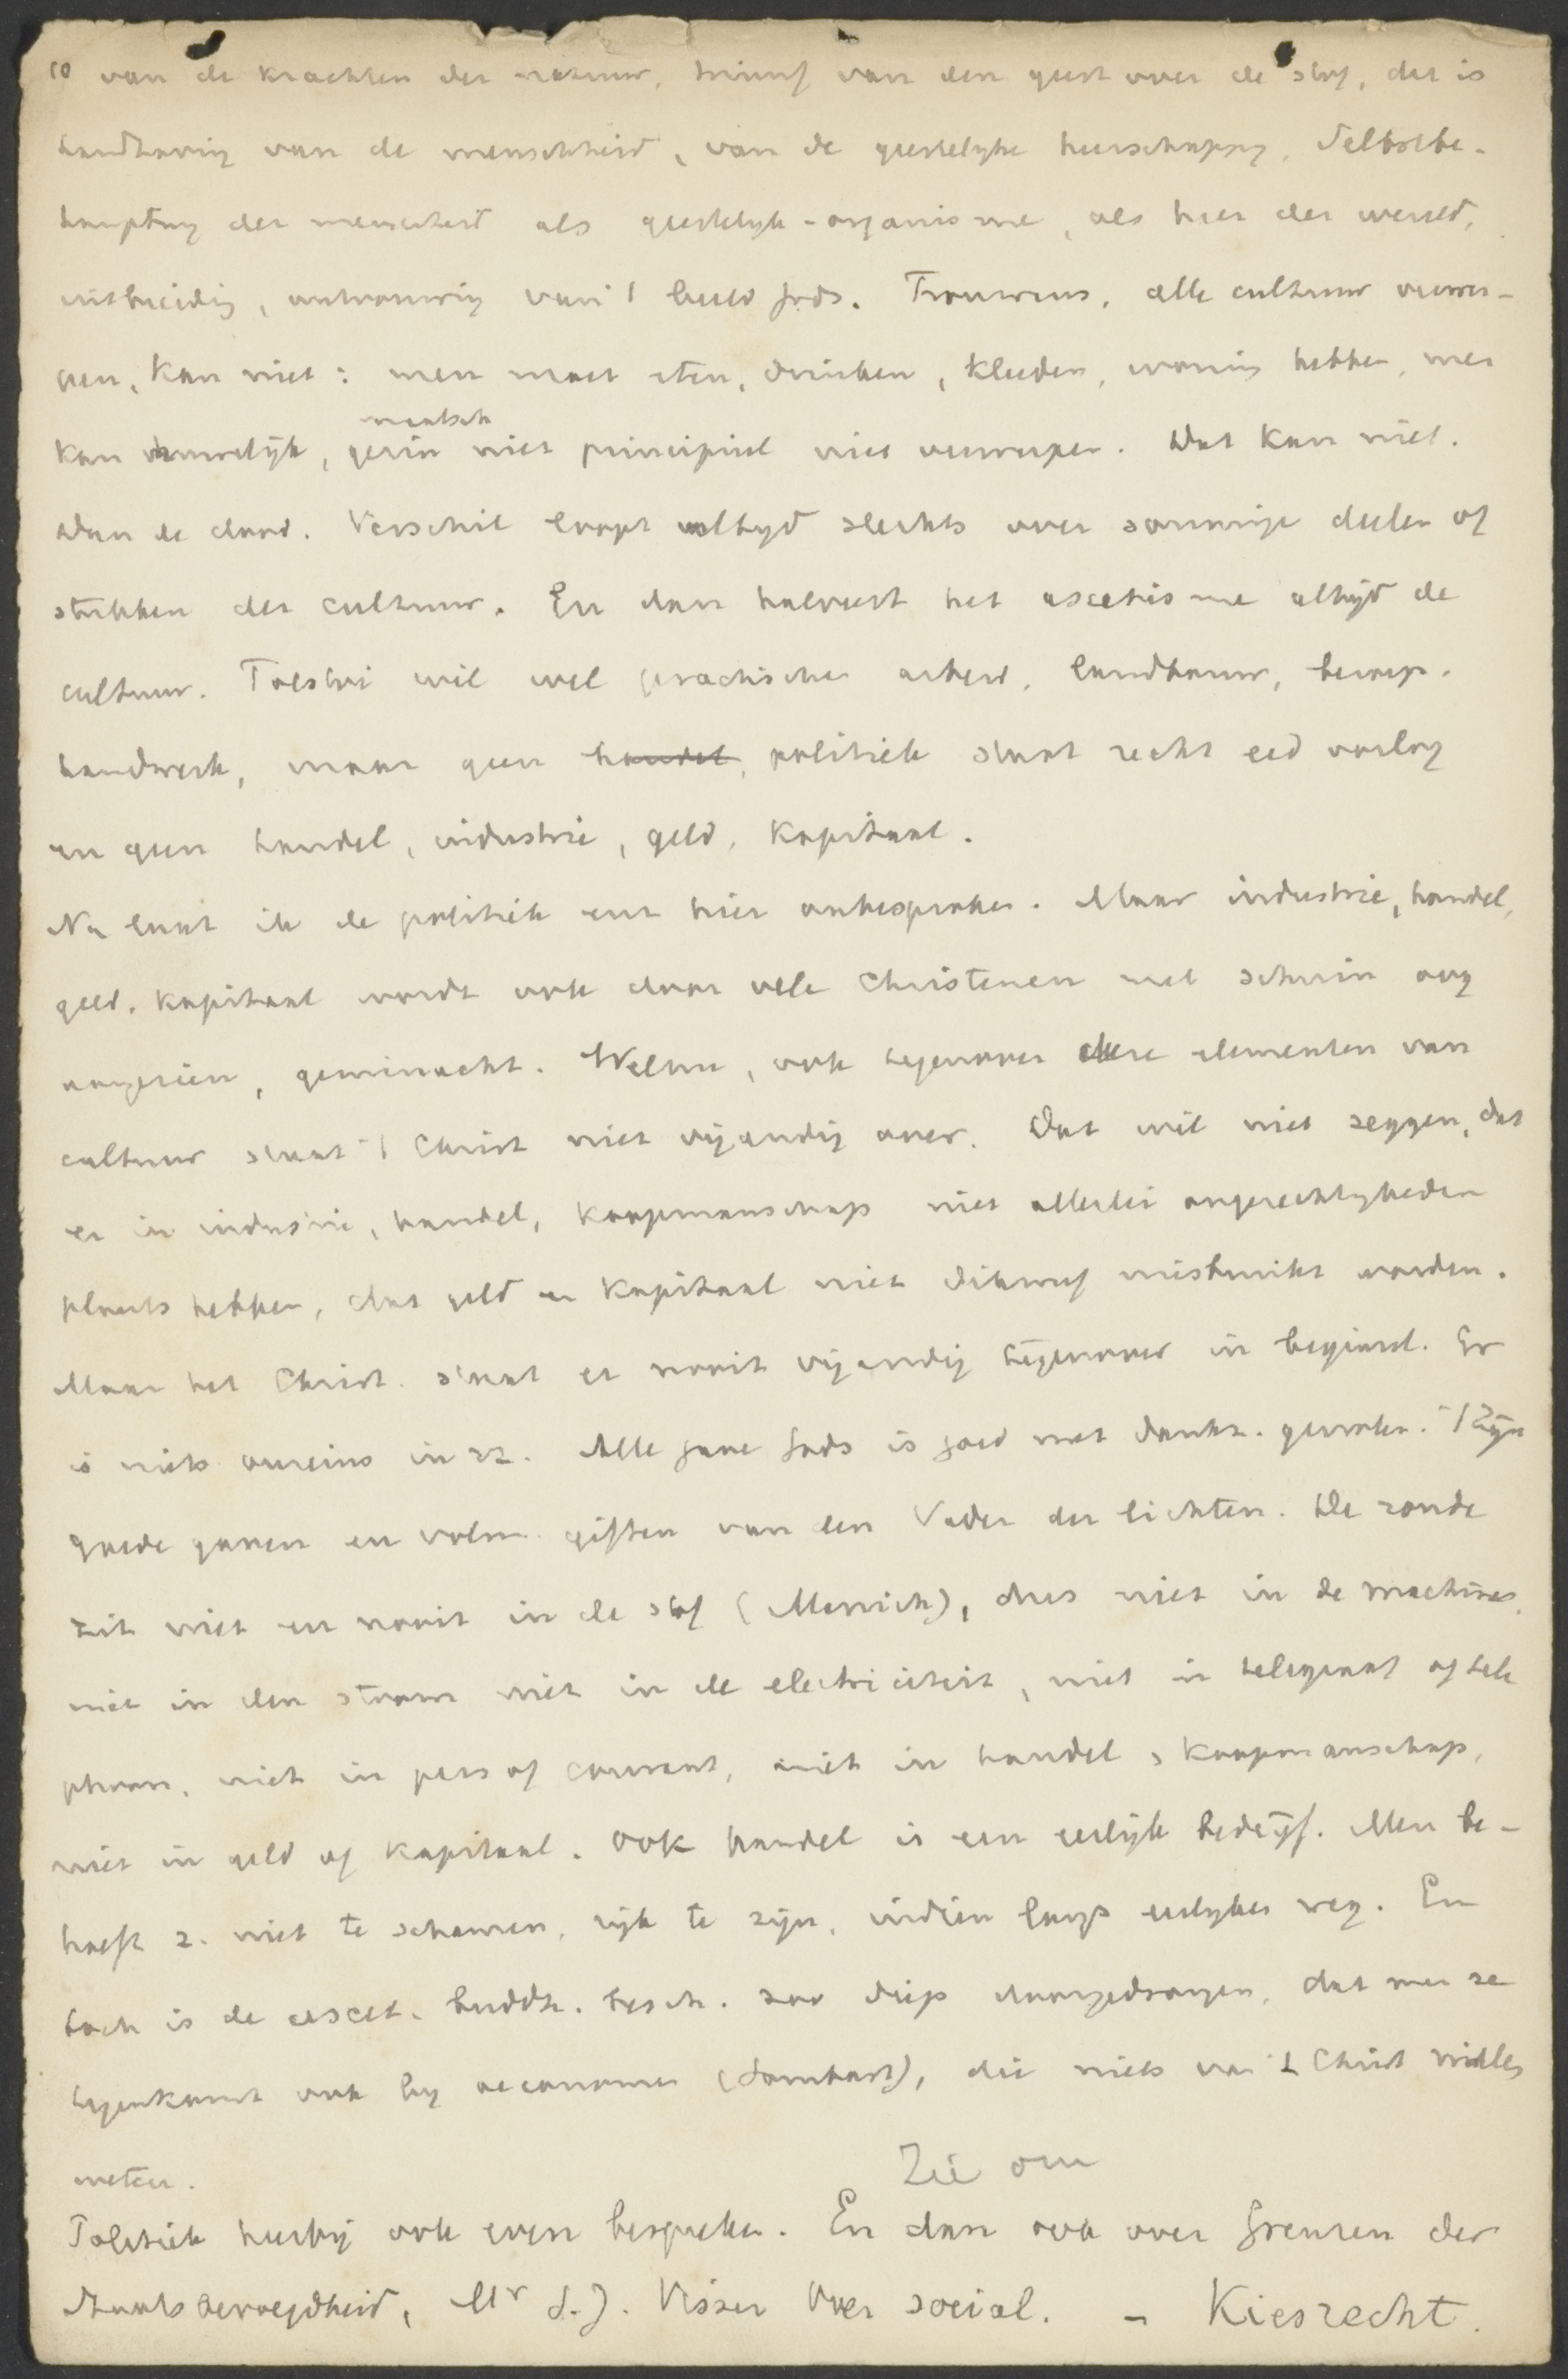 10 van de krachten der natuur, triumf van den geest over de stof, dat is
handhaving van de menschheid, van de geestelyke heerschappy, Selbstbe-
hauptung der menschheid als geestelyk-organisme, als heer der wereld,
uitbreiding, ontvouwing van 't beeld Gods. Trouwens, alle cultuur verwer-
pen, kan niet: men moet eten, drinken, kleeden, woning hebben, men
kan huwelijk, gezin maatsch niet principieel niet verwerpen. Dat kan niet.
Dan de dood. Verschil loopt altyd slechts over sommige deelen of
stukken der cultuur. En dan halveert het ascetisme altijd de
cultuur. Tolstoi wil wel practischen arbeid, landbouw, beroep.
handwerk, maar geen handel, politiek staat recht eed oorlog
en geen handel, industrie, geld, kapitaal.
Nu laat ik de politiek eens hier onbesproken. Maar industrie, handel,
geld, kapitaal wordt ook door vele Christenen met schuin oog
aangezien, geminacht. Welnu, ook tegenover deze elementen van
cultuur staat 't Christ niet vijandig over. Dat wil niet zeggen, dat
er in industrie, handel, koopmanschap niet allerlei ongerechtigheden
plaats hebben, dat geld en kapitaal niet dikwerf misbruikt worden.
Maar het Christ. staat er nooit vijandig tegenover in beginsel. Er
is niets onreins in zz. Alle gave Gods is goed met dankz. genoten. 't Zijn
goede gaven en volm. giften van den Vader der lichten. De zonde
zit niet en nooit in de stof (Manich), dus niet in de machines,
niet in den stoom niet in de electriciteit, niet in telegraaf of tele
phoon, niet in pers of courant, niet in handel, koopmanschap,
niet in geld of kapitaal. Ook handel is een eerlijk bedrijf. Men be-
hoeft z. niet te schamen, rijk te zijn, indien langs eerlyken weg. En
toch is de ascet. buddh. besch. zoo diep doorgedrongen, dat men ze
tegenkomt ook by oeconomen (Sombart), die niets van 't Christ willen
weten.
Zie om
Politiek hierbij ook even bespreken. En dan ook over Grenzen der
Staatsbevoegdheid, Mr S.J. Visser Over social. - Kiesrecht.